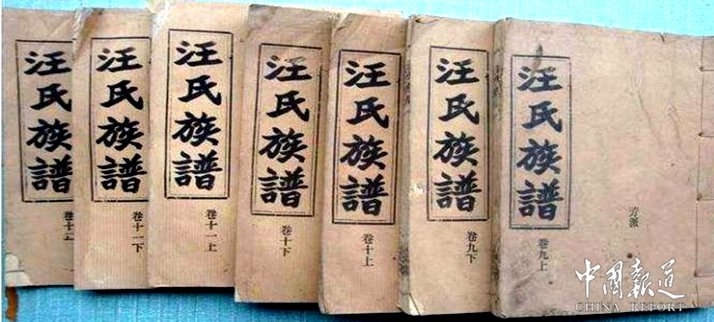 汪氏族譜
卷十二
汪氏族譜
卷十一下
汪氏族譜
卷十一上
汪氏族譜
卷十下
汪氏族譜
卷十上
汪氏族譜
卷九下
汪氏族譜
卷九上
芳派
中國報道
CHINA REPORT